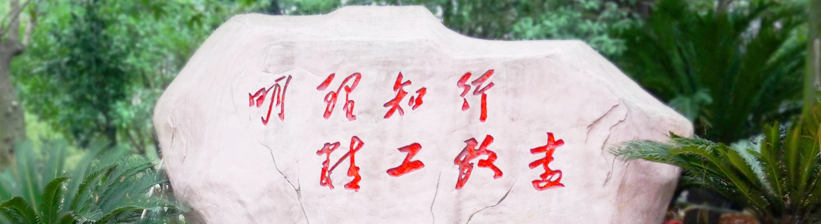 明理知行
精工致善